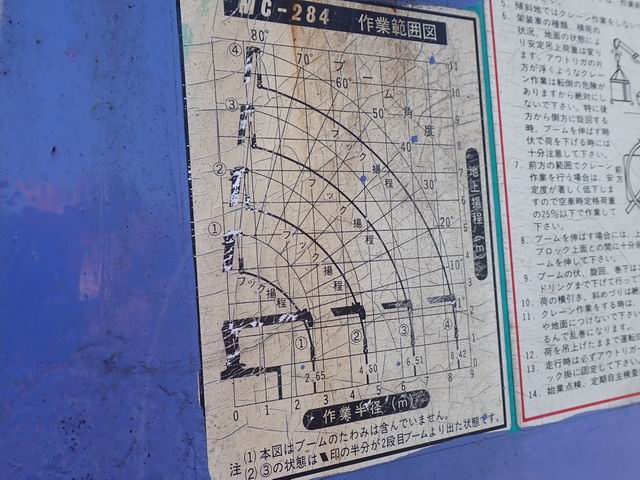 MC-284 作業範囲図
④
80°
70°
60°
50°
40°
30°
20°
10°
ブーム角度
③
②
①
フック揚程
フック揚程
フック揚程
フック揚程
地上揚程(m)
11
10
9
8
7
6
5
4
3
2
1
0
① ② ③ ④
2.65 4.60 6.51 8.42
0 1 2 3 4 5 6 7 8 9
作業半径(m)
注(1)本図はブームのたわみは含んでいません。
(2)③の状態は▮印の半分が2段目ブームより出た状態です。
5. 傾斜地ではクレーン作業をしな
6. 架装車の種類、積荷の
状況、地面の状態によ
り安定吊上荷重は変り
ます。アウトリガの片
方が浮くようなクレー
ン作業は転倒の危険が
ありますから絶対にし
ないで下さい。特に後
方から側方に旋回する
時、ブームを伸ばす時
伏で荷を下げる時には
十分注意して下さい。
7. 前方の範囲でクレーン
作業を行う場合は、安
定度が著しく低下しま
すので空車時定格荷重
の25%以下で作業して
下さい。
8. ブームを伸ばす場合には、
ブロック上面との間に十分
ームを伸して下さい。
9. ブームの伏、旋回、巻下は
ドリングまで下げて行っ
10. 荷の横引き、斜めづりは絶
11. クレーン作業をする時は、
や地面につけないで下さい
るんで乱巻になります。
12. 荷を吊上げたままで運転
13. 走行時は必ずアウトリガ
ック掛に固定して下さい
14. 始業点検、定期自主検査